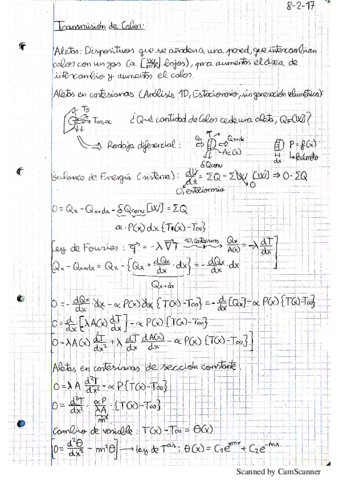 8-2-17
Transmisión de Calor:
Aletas: Dispositivos que se añaden a una pared, que intercambian
calor con un gas (α [W/m²K] bajos), para aumentar el área de
intercambio y aumentar el calor.
Aletas en cartesianas (Análisis 1D, Estacionario, sin generación volumétrica):
Ts
T∞, α
¿Qué cantidad de calor cede una aleta, Q=Q(x)?
Rodaja diferencial:
Qx
Qx+dx
Ac(x)
δQconv
dx
P=f(x)
Balance de Energía (sistema): dU/dt = ΣQ - ΣW [W] ⇒ 0=ΣQ
0, estacionario
0
0 = Qx - Qx+dx - δQconv [W] = ΣQ
α·P(x)dx{T(x)-T∞}
Ley de Fourier: q = -λ∇T
Qx/A(x) = -λ dT/dx
Qx - Qx+dx = Qx - {Qx + dQx/dx · dx} = - dQx/dx · dx
Qx+dx
0 = - dQx/dx · dx - αP(x)dx{T(x)-T∞} = - d/dx{Qx} - αP(x){T(x)-T∞}
0 = d/dx[λA(x) dT/dx] - αP(x){T(x)-T∞}
0 = λA(x) d²T/dx² + λ dT/dx dA(x)/dx - αP(x){T(x)-T∞}
Aletas en cartesianas de sección constante:
0 = λA d²T/dx² - αP{T(x)-T∞}
0 = d²T/dx² - αP/λA · {T(x)-T∞}
m²
Cambio de variable: T(x)-T∞ = θ(x)
0 = d²θ/dx² - m²θ → Ley de Tas: θ(x) = C₁e^mx + C₂e^-mx
Scanned by CamScanner